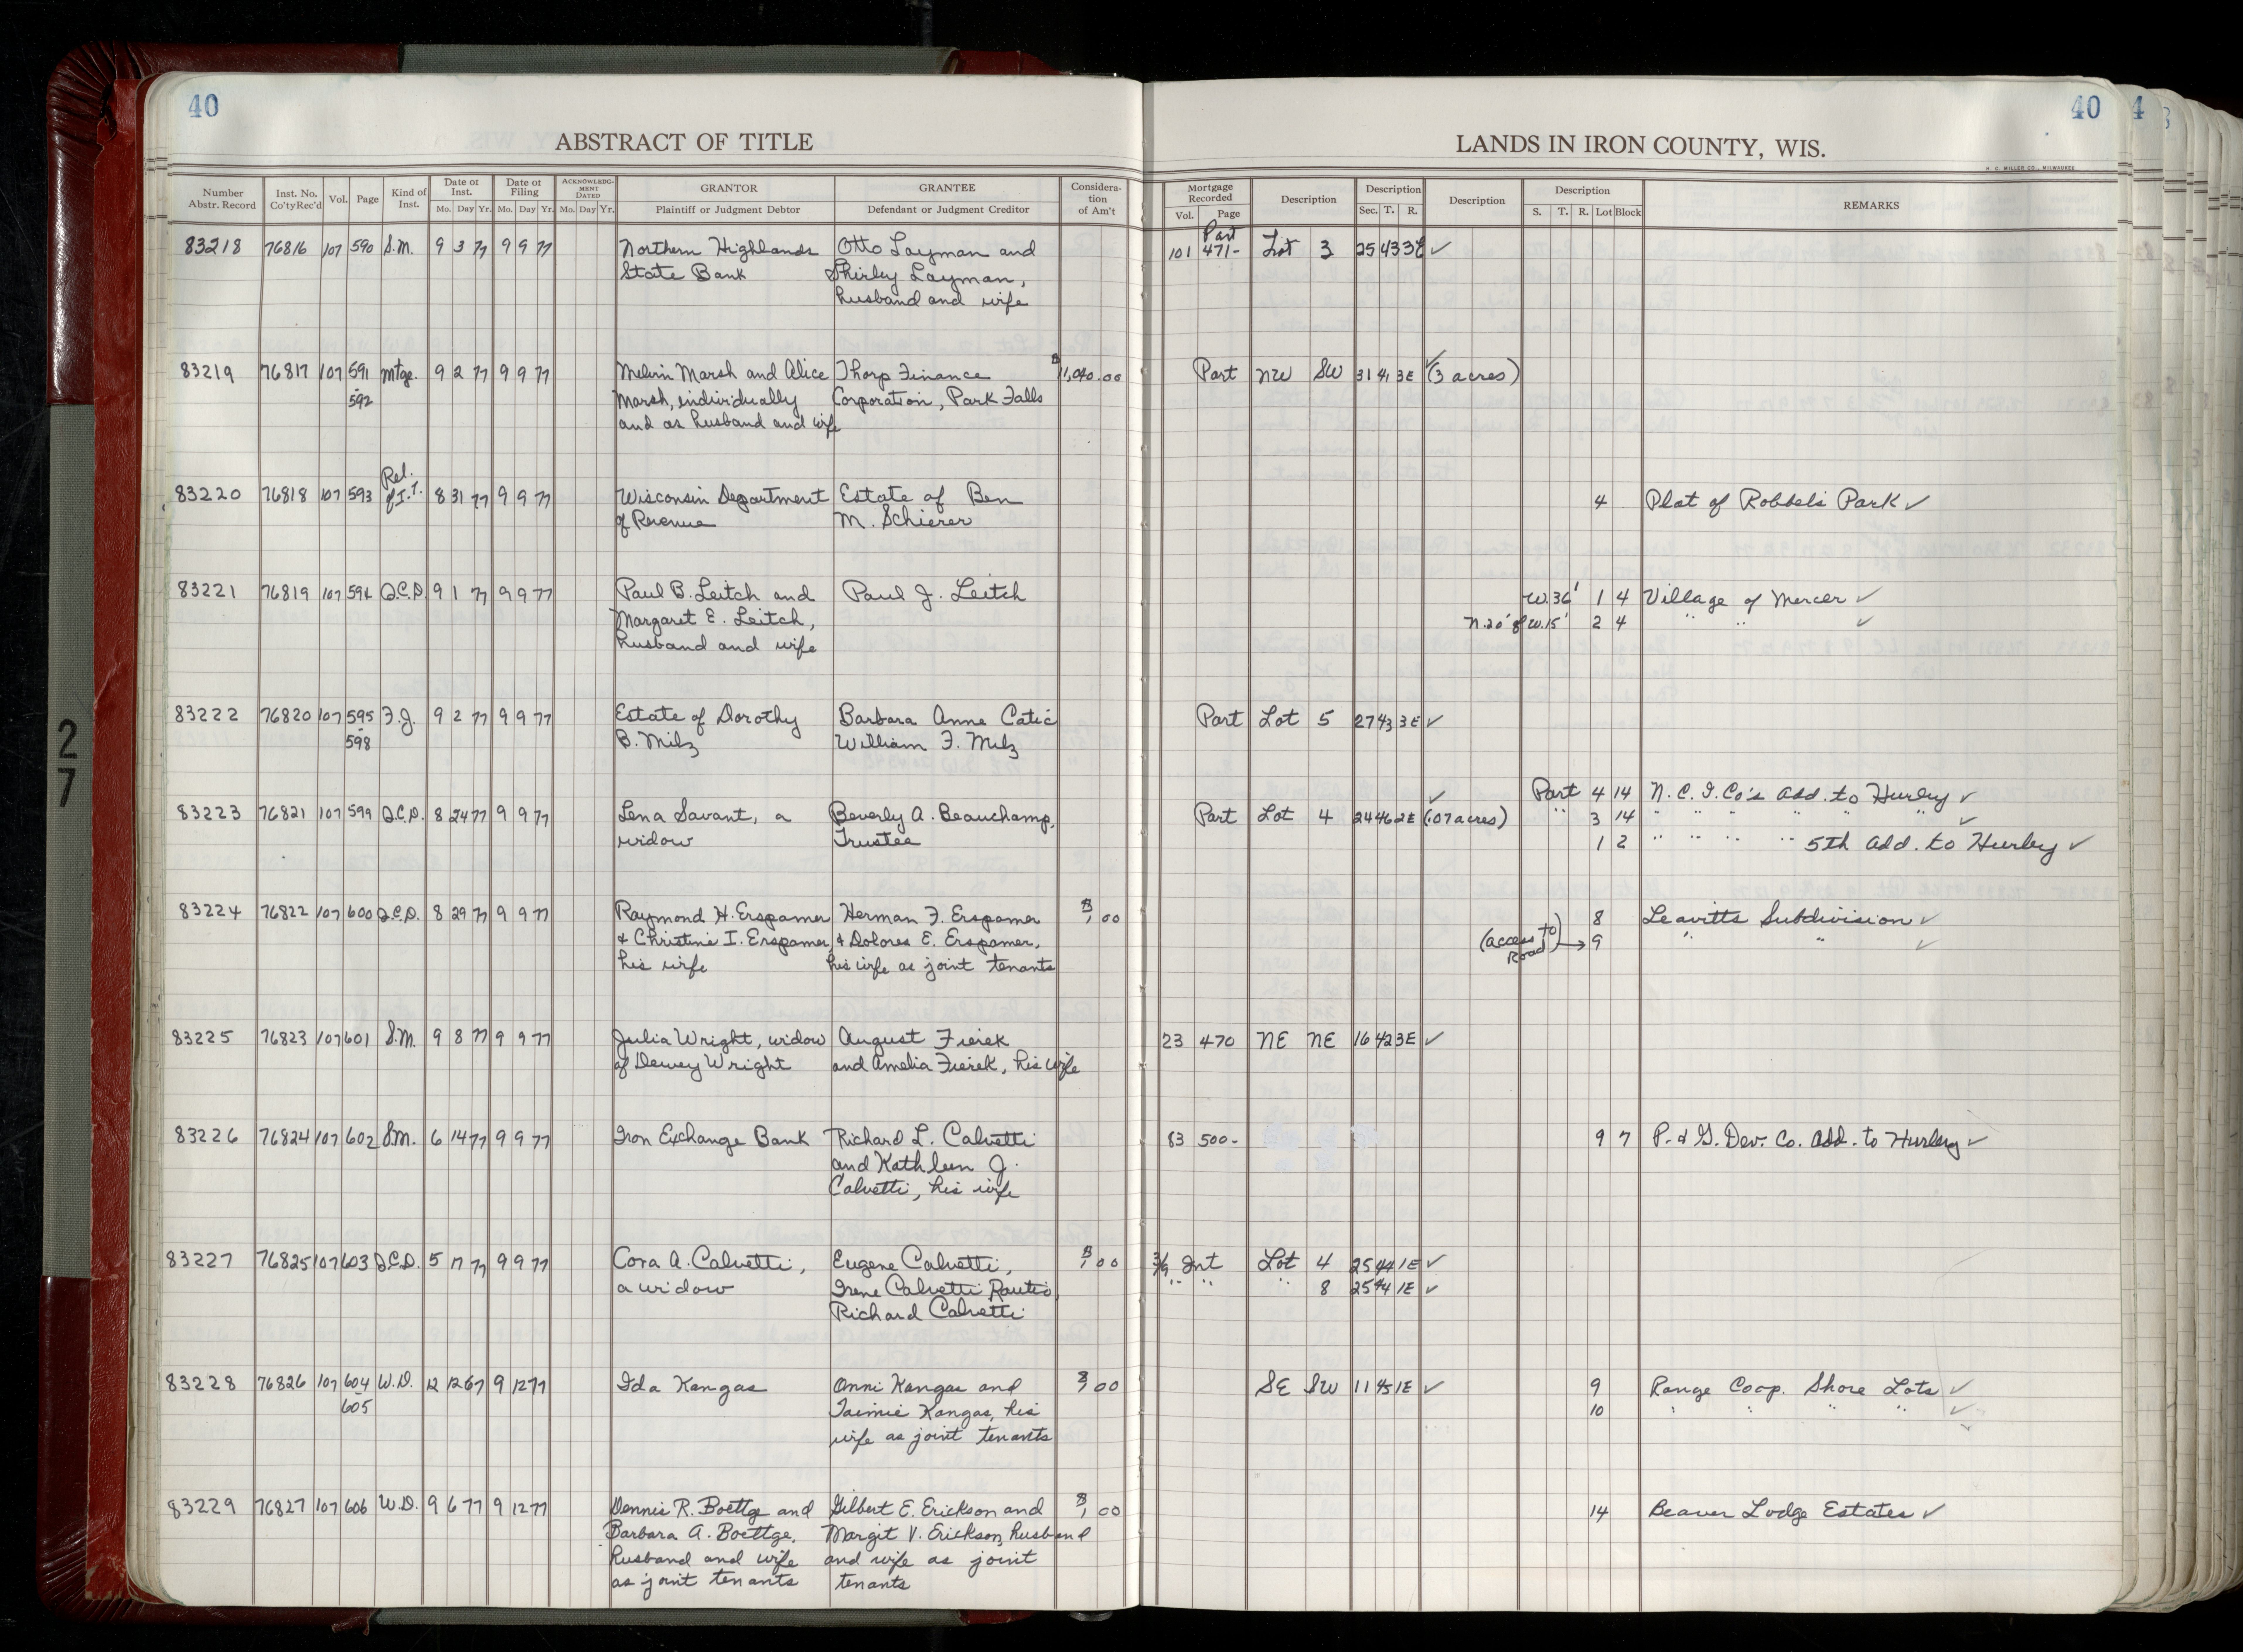 40
40
4
ABSTRACT OF TITLE
LANDS IN IRON COUNTY, WIS.
H. C. MILLER CO., MILWAUKEE
Number Abstr. Record
Inst. No. Co'ty Rec'd
Vol.
Page
Kind of Inst.
Date of Inst.
Mo. Day Yr.
Date of Filing
Mo. Day Yr.
ACKNOWLEDG-MENT DATED
Mo. Day Yr.
GRANTOR
Plaintiff or Judgment Debtor
GRANTEE
Defendant or Judgment Creditor
Considera-tion of Am't
Mortgage Recorded
Vol. Page
Description
Description
Sec. T. R.
Description
Description
S. T. R. Lot Block
REMARKS
83218 76816 107 590 S.M. 9 3 77 9 9 77 Northern Highlands Otto Layman and 101 Part 471- Lot 3 25 43 3E ✓
State Bank Shirley Layman,
husband and wife
83219 76817 107 591 Mtge. 9 2 77 9 9 77 Melvin Marsh and Alice Thorp Finance $11,040.00 Part NW SW 31 41 3E ✓ (3 acres)
-592 Marsh, individually Corporation, Park Falls
and as husband and wife
83220 76818 107 593 Rel. of I.T. 8 31 77 9 9 77 Wisconsin Department Estate of Ben 4 Plat of Robbels Park ✓
of Revenue M. Schierer
83221 76819 107 594 Q.C.D. 9 1 77 9 9 77 Paul B. Leitch and Paul J. Leitch W.36' 1 4 Village of Mercer ✓
Margaret E. Leitch, N.20' of W.15' 2 4 " " ✓
husband and wife
83222 76820 107 595 F.J. 9 2 77 9 9 77 Estate of Dorothy Barbara Anne Catic Part Lot 5 27 43 3E ✓
-598 B. Milz William F. Milz
Part 4 14 N.C.I.Co's Add. to Hurley ✓
83223 76821 107 599 Q.C.D. 8 24 77 9 9 77 Lena Savant, a Beverly A. Beauchamp, Part Lot 4 24 46 2E ✓ (.07 acres) " 3 14 " " " " " " ✓
widow Trustee 1 2 " " " " 5th Add. to Hurley ✓
83224 76822 107 600 Q.C.D. 8 29 77 9 9 77 Raymond H. Erspamer Herman F. Erspamer $1.00 8 Leavitts Subdivision ✓
& Christine I. Erspamer, & Dolores E. Erspamer, (access to Road) → 9 " " ✓
his wife his wife as joint tenants
83225 76823 107 601 S.M. 9 8 77 9 9 77 Julia Wright, widow August Fierek 23 470 NE NE 16 42 3E ✓
of Dewey Wright and Amelia Fierek, his wife
83226 76824 107 602 S.M. 6 14 77 9 9 77 Iron Exchange Bank Richard L. Calvetti 83 500- 9 7 P. & G. Dev. Co. Add. to Hurley ✓
and Kathleen J.
Calvetti, his wife
83227 76825 107 603 Q.C.D. 5 17 77 9 9 77 Cora A. Calvetti, Eugene Calvetti, $1.00 3/9 Int Lot 4 25 44 1E ✓
a widow Irene Calvetti Rautio, " " " 8 25 44 1E ✓
Richard Calvetti
83228 76826 107 604 W.D. 12 12 67 9 12 77 Ida Kangas Onni Kangas and $1.00 SE SW 11 45 1E ✓ 9 Range Coop. Shore Lots ✓
-605 Taimie Kangas, his 10 " " " " ✓
wife as joint tenants
83229 76827 107 606 W.D. 9 6 77 9 12 77 Dennis R. Boettge and Gilbert E. Erickson and $1.00 14 Beaver Lodge Estates ✓
Barbara A. Boettge, Margit V. Erickson, husband
husband and wife and wife as joint
as joint tenants tenants
27